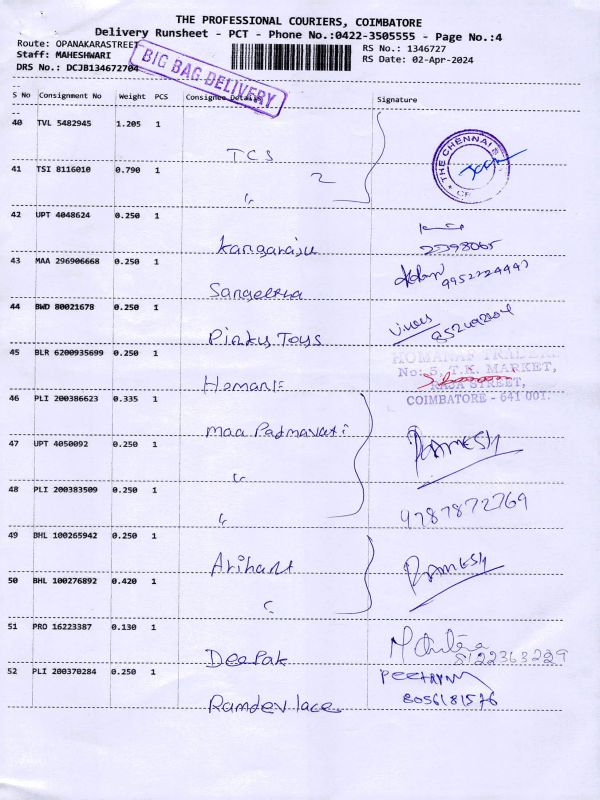 THE PROFESSIONAL COURIERS, COIMBATORE
Delivery Runsheet - PCT - Phone No.:0422-3505555 - Page No.:4
Route: OPANAKARASTREET
RS No.: 1346727
Staff: MAHESHWARI
RS Date: 02-Apr-2024
DRS No.: DCJB134672704
BIG BAG DELIVERY
S No Consignment No Weight PCS Consignee Details Signature
40 TVL 5482945 1.205 1
TCS
THE CHENNAI
41 TSI 8116010 0.790 1
2
"
42 UPT 4048624 0.250 1
Kangaraju
43 MAA 296906668 0.250 1
Sangeetha
44 BWD 80021678 0.250 1
Pinky Toys
45 BLR 6200935699 0.250 1
No: 5, T.K. MARKET,
RAJA STREET,
COIMBATORE - 641 001.
46 PLI 200386623 0.335 1
maa Padmavati
RAMESH
47 UPT 4050092 0.250 1
"
48 PLI 200383509 0.250 1
"
9787872769
49 BHL 100265942 0.250 1
Arihant
RAMESH
50 BHL 100276892 0.420 1
"
51 PRO 16223387 0.130 1
Deepak
52 PLI 200370284 0.250 1
Ramdev lace
8056181576